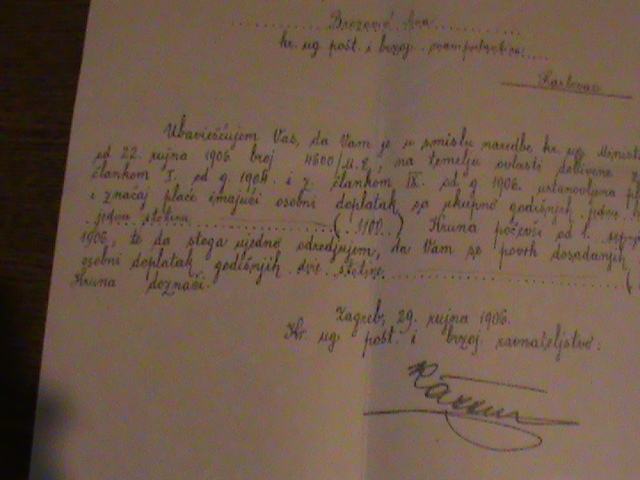 Brozović Ana
kr. ug. pošt. i brzoj.
Karlovac
Ubavješćujem Vas, da Vam je u smislu naredbe kr. ug. Minist
od 22. rujna 1906. broj 4600/M.E., na temelju ovlasti dobivene
člankom I. od g. 1904. i z. člankom IX. od g. 1906. ustanovljena
i značaj plaće imajući osobni doplatak sa ukupno godišnjih
jedna stotina (1100.) Kruna počevši od 1.
1906, te da stoga ujedno odredjujem, da Vam se povrh dosadanjih
osobni doplatak godišnjih dvije stotine (
Kruna doznači.
Zagreb, 29. rujna 1906.
Kr. ug. pošt. i brzoj. ravnateljstvo: